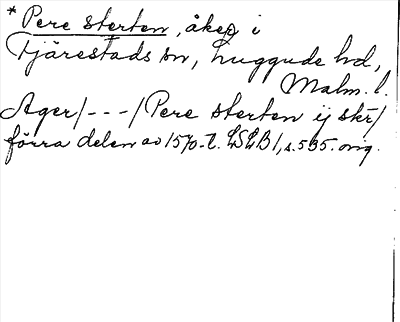 * Pere sterten, åker i
Tjärestads sn, Luggude hd,
Malm. l.
Ager/---/Pere sterten ij skr/
förra delen av 1570-t. LSLB 1, s. 535. orig.